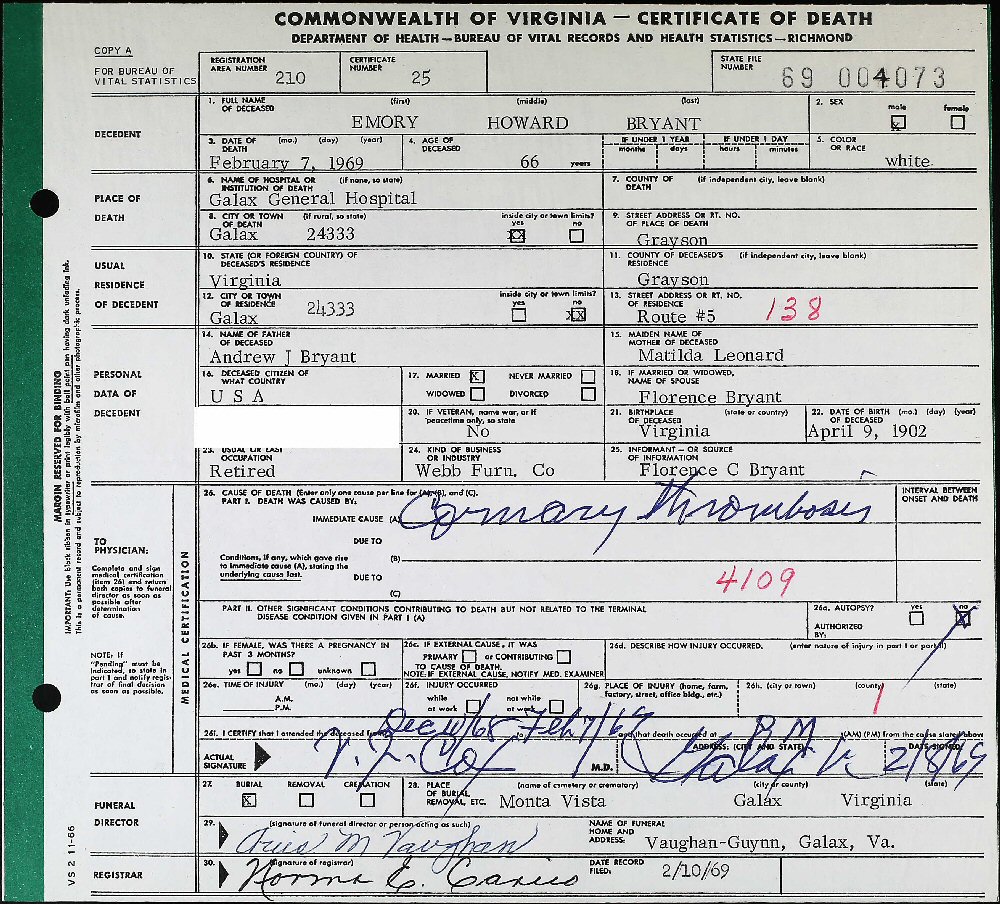 COMMONWEALTH OF VIRGINIA — CERTIFICATE OF DEATH
DEPARTMENT OF HEALTH — BUREAU OF VITAL RECORDS AND HEALTH STATISTICS — RICHMOND
COPY A
FOR BUREAU OF VITAL STATISTICS
REGISTRATION AREA NUMBER 210
CERTIFICATE NUMBER 25
STATE FILE NUMBER 69 004073
DECEDENT
1. FULL NAME OF DECEASED (first) (middle) (last)
EMORY HOWARD BRYANT
2. SEX male female
3. DATE OF DEATH (mo.) (day) (year)
February 7, 1969
4. AGE OF DECEASED
66 years
IF UNDER 1 YEAR months days
IF UNDER 1 DAY hours minutes
5. COLOR OR RACE
white
PLACE OF DEATH
6. NAME OF HOSPITAL OR INSTITUTION OF DEATH (if none, so state)
Galax General Hospital
7. COUNTY OF DEATH (if independent city, leave blank)
8. CITY OR TOWN OF DEATH (if rural, so state)
Galax 24333
inside city or town limits? yes no
9. STREET ADDRESS OR RT. NO. OF PLACE OF DEATH
Grayson
USUAL RESIDENCE OF DECEDENT
10. STATE (OR FOREIGN COUNTRY) OF DECEASED'S RESIDENCE
Virginia
11. COUNTY OF DECEASED'S RESIDENCE (if independent city, leave blank)
Grayson
12. CITY OR TOWN OF RESIDENCE
Galax 24333
inside city or town limits? yes no
13. STREET ADDRESS OR RT. NO. OF RESIDENCE
Route #5 138
PERSONAL DATA OF DECEDENT
14. NAME OF FATHER OF DECEASED
Andrew J Bryant
15. MAIDEN NAME OF MOTHER OF DECEASED
Matilda Leonard
16. DECEASED CITIZEN OF WHAT COUNTRY
U S A
17. MARRIED NEVER MARRIED
WIDOWED DIVORCED
18. IF MARRIED OR WIDOWED, NAME OF SPOUSE
Florence Bryant
20. IF VETERAN, name war, or if peacetime only, so state
No
21. BIRTHPLACE OF DECEASED (state or country)
Virginia
22. DATE OF BIRTH OF DECEASED (mo.) (day) (year)
April 9, 1902
23. USUAL OR LAST OCCUPATION
Retired
24. KIND OF BUSINESS OR INDUSTRY
Webb Furn. Co
25. INFORMANT — OR SOURCE OF INFORMATION
Florence C Bryant
MARGIN RESERVED FOR BINDING
IMPORTANT: Use black ribbon in typewriter or print legibly with ball point pen having dark unfading ink.
This is a permanent record and subject to reproduction by microfilm and other photographic process.
TO PHYSICIAN:
Complete and sign medical certification (item 26) and return both copies to funeral director as soon as possible after determination of cause.
NOTE: IF "Pending" must be indicated, so state in part I and notify registrar of final decision as soon as possible.
MEDICAL CERTIFICATION
26. CAUSE OF DEATH (Enter only one cause per line for (A), (B), and (C).
PART I. DEATH WAS CAUSED BY:
INTERVAL BETWEEN ONSET AND DEATH
IMMEDIATE CAUSE (A) Coronary thrombosis
DUE TO
Conditions, if any, which gave rise to immediate cause (A), stating the underlying cause last.
(B)
DUE TO
(C)
4109
PART II. OTHER SIGNIFICANT CONDITIONS CONTRIBUTING TO DEATH BUT NOT RELATED TO THE TERMINAL DISEASE CONDITION GIVEN IN PART I (A)
26a. AUTOPSY? yes no
AUTHORIZED BY:
26b. IF FEMALE, WAS THERE A PREGNANCY IN PAST 3 MONTHS?
yes no unknown
26c. IF EXTERNAL CAUSE, IT WAS
PRIMARY or CONTRIBUTING
TO CAUSE OF DEATH.
NOTE: IF EXTERNAL CAUSE, NOTIFY MED. EXAMINER
26d. DESCRIBE HOW INJURY OCCURRED. (enter nature of injury in part I or part II)
26e. TIME OF INJURY (mo.) (day) (year)
A.M.
P.M.
26f. INJURY OCCURRED
while at work not while at work
26g. PLACE OF INJURY (home, farm, factory, street, office bldg., etc.)
26h. (city or town) (county) (state)
1
26i. I CERTIFY that I attended the deceased from Dec 10/68 to Feb 7/69 and that death occurred at P.M. (AM) (PM) from the cause stated above
ACTUAL SIGNATURE
M.D.
ADDRESS: (CITY AND STATE)
Galax Va
DATE SIGNED:
2/8/69
FUNERAL DIRECTOR
27. BURIAL REMOVAL CREMATION
28. PLACE OF BURIAL, REMOVAL, ETC. (name of cemetery or crematory) (city or county) (state)
Monta Vista Galax Virginia
29. (signature of funeral director or person acting as such)
Vaughan
NAME OF FUNERAL HOME AND ADDRESS:
Vaughan-Guynn, Galax, Va.
REGISTRAR
30. (signature of registrar)
Norma E.
DATE RECORD FILED:
2/10/69
VS 2 11-66